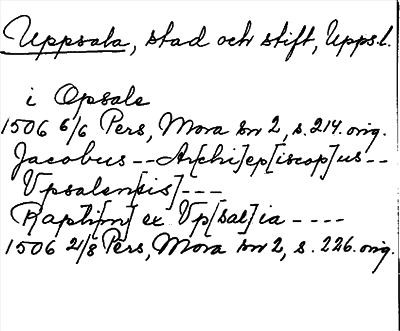 Uppsala, stad och stift, Uppsl.
i Opsale
1506 6/6 Pers, Mora sn 2, s. 214. orig.
Jacobus -- Ar[chi]ep[iscop]us --
Vpsalen[sis] ---
Rapti[m] ex Vp[sal]ia ----
1506 21/8 Pers, Mora sn 2, s. 226. orig.